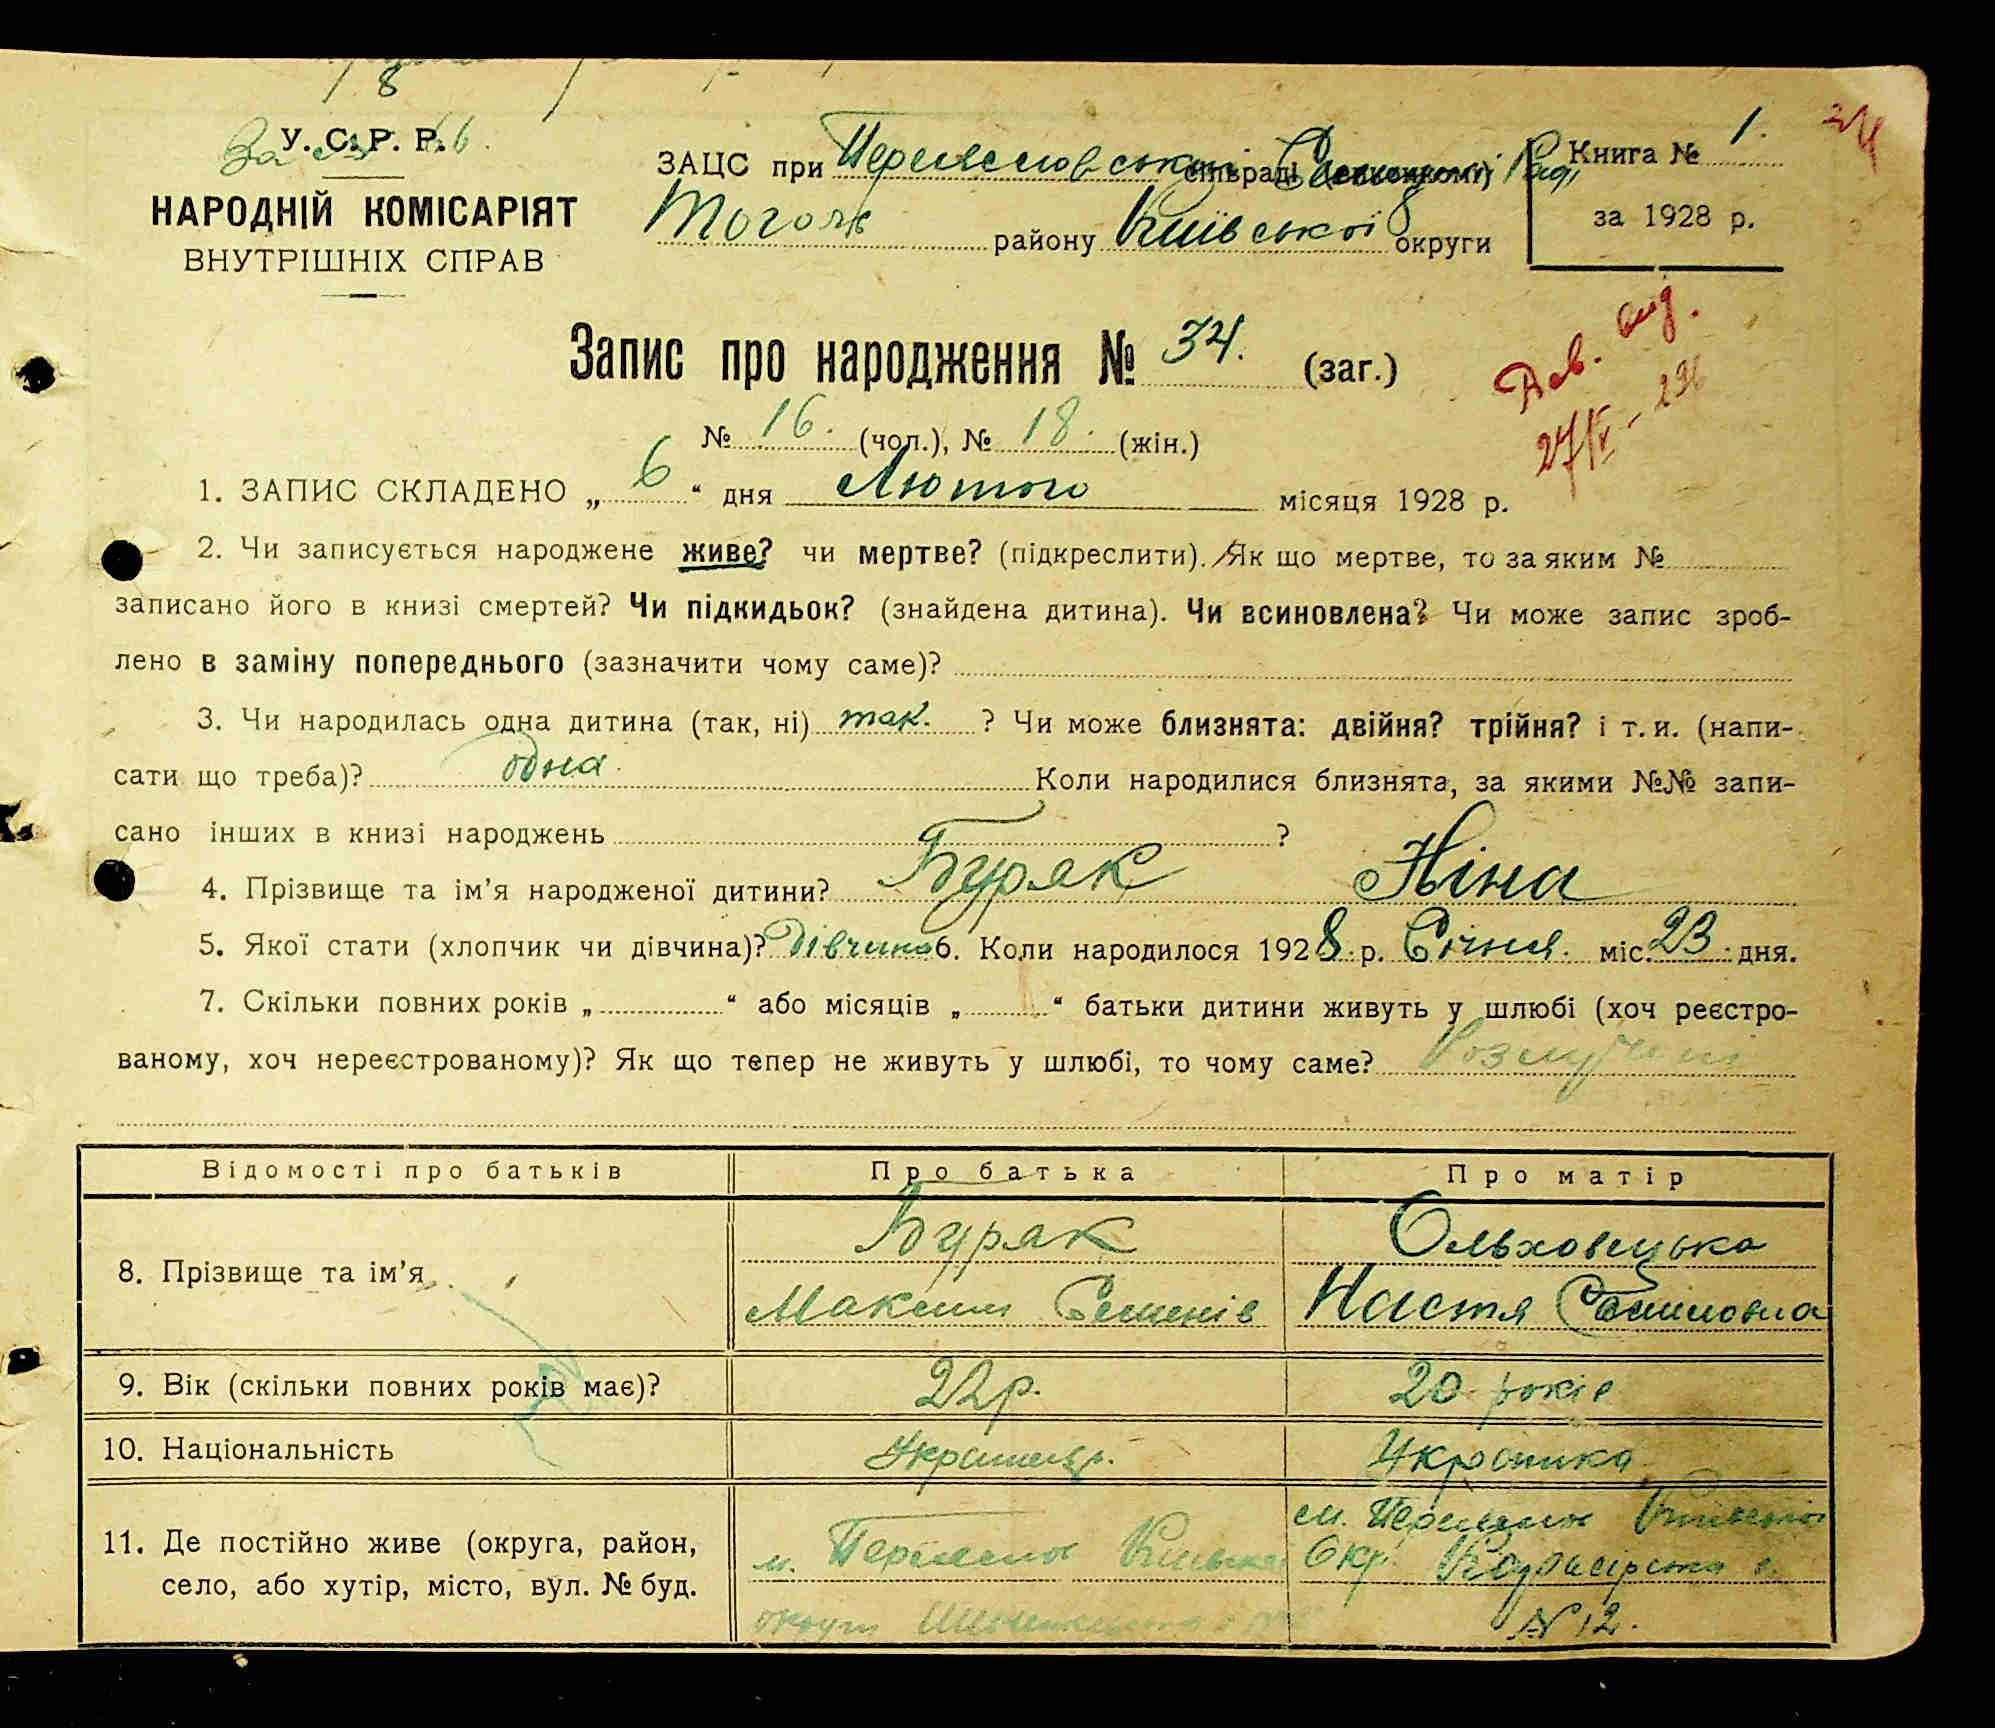 8
У. С. Р. Р.
НАРОДНІЙ КОМІСАРІЯТ
ВНУТРІШНІХ СПРАВ
ЗАЦС при Переяславській сільраді (виконкомі) Раді
Тогож району Київської округи
Книга № 1.
за 1928 р.
34
Запис про народження № 34. (заг.)
№ 16. (чол.), № 18. (жін.)
27/V
1. ЗАПИС СКЛАДЕНО „ 6 “ дня Лютого місяця 1928 р.
2. Чи записується народжене живе? чи мертве? (підкреслити). Як що мертве, то за яким №
записано його в книзі смертей? Чи підкидьок? (знайдена дитина). Чи всиновлена? Чи може запис зроб-
лено в заміну попереднього (зазначити чому саме)?
3. Чи народилась одна дитина (так, ні) так. ? Чи може близнята: двійня? трійня? і т. и. (напи-
сати що треба)? одна. Коли народилися близнята, за якими №№ запи-
сано інших в книзі народжень ?
4. Прізвище та ім’я народженої дитини? Буряк Ніна
5. Якої стати (хлопчик чи дівчина)? Дівчина 6. Коли народилося 1928 р. Січня. міс. 23 дня.
7. Скільки повних років „ “ або місяців „ “ батьки дитини живуть у шлюбі (хоч реєстро-
ваному, хоч нереєстрованому)? Як що тепер не живуть у шлюбі, то чому саме? Розлучені
Відомості про батьків Про батька Про матір
8. Прізвище та ім’я Буряк Максим Семенів Ольховецька Настя
9. Вік (скільки повних років має)? 22 р. 20 років
10. Національність Українець. Українка
11. Де постійно живе (округа, район,
село, або хутір, місто, вул. № буд.
м. Переяслов Київська
округи
м. Переяслов Київської
Окр.
№ 12.